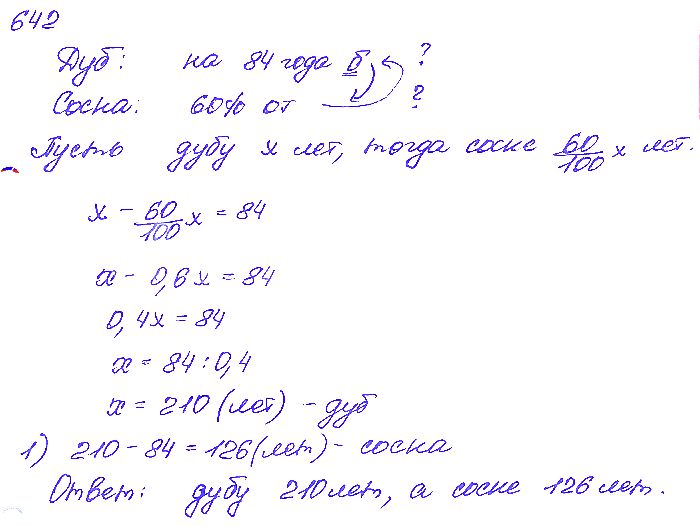 642
Дуб: на 84 года б ?
Сосна: 60% от ?
Пусть дубу x лет, тогда сосне 60/100 x лет.
x - 60/100 x = 84
x - 0,6x = 84
0,4x = 84
x = 84 : 0,4
x = 210 (лет) - дуб
1) 210 - 84 = 126 (лет) - сосна
Ответ: дубу 210 лет, а сосне 126 лет.